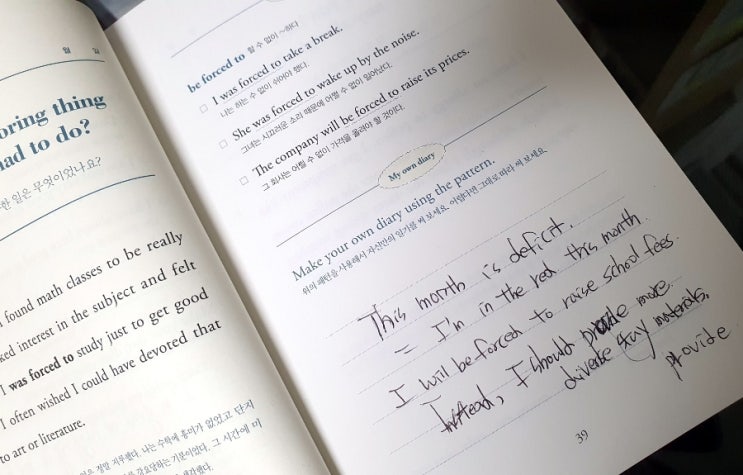 월
oring thing
had to do?
한 일은 무엇이었나요?
found math classes to be really
ked interest in the subject and felt
I was forced to study just to get good
I often wished I could have devoted that
to art or literature.
나는 수학에 흥미가 없었고 단지
그 시간에 미
be forced to 할 수 없이 ~하다
□ I was forced to take a break.
나는 하는 수 없이 쉬어야 했다.
□ She was forced to wake up by the noise.
그녀는 시끄러운 소리 때문에 어쩔 수 없이 일어났다.
□ The company will be forced to raise its prices.
그 회사는 어쩔 수 없이 가격을 올려야 할 것이다.
My own diary
Make your own diary using the pattern.
위의 패턴을 사용해서 자신만의 일기를 써 보세요. 어렵다면 그대로 따라 써 보세요.
This month is deficit.
= I'm in the red this month.
I will be forced to raise school fees.
Instead, I should provide more
diverse materials.
provide
39